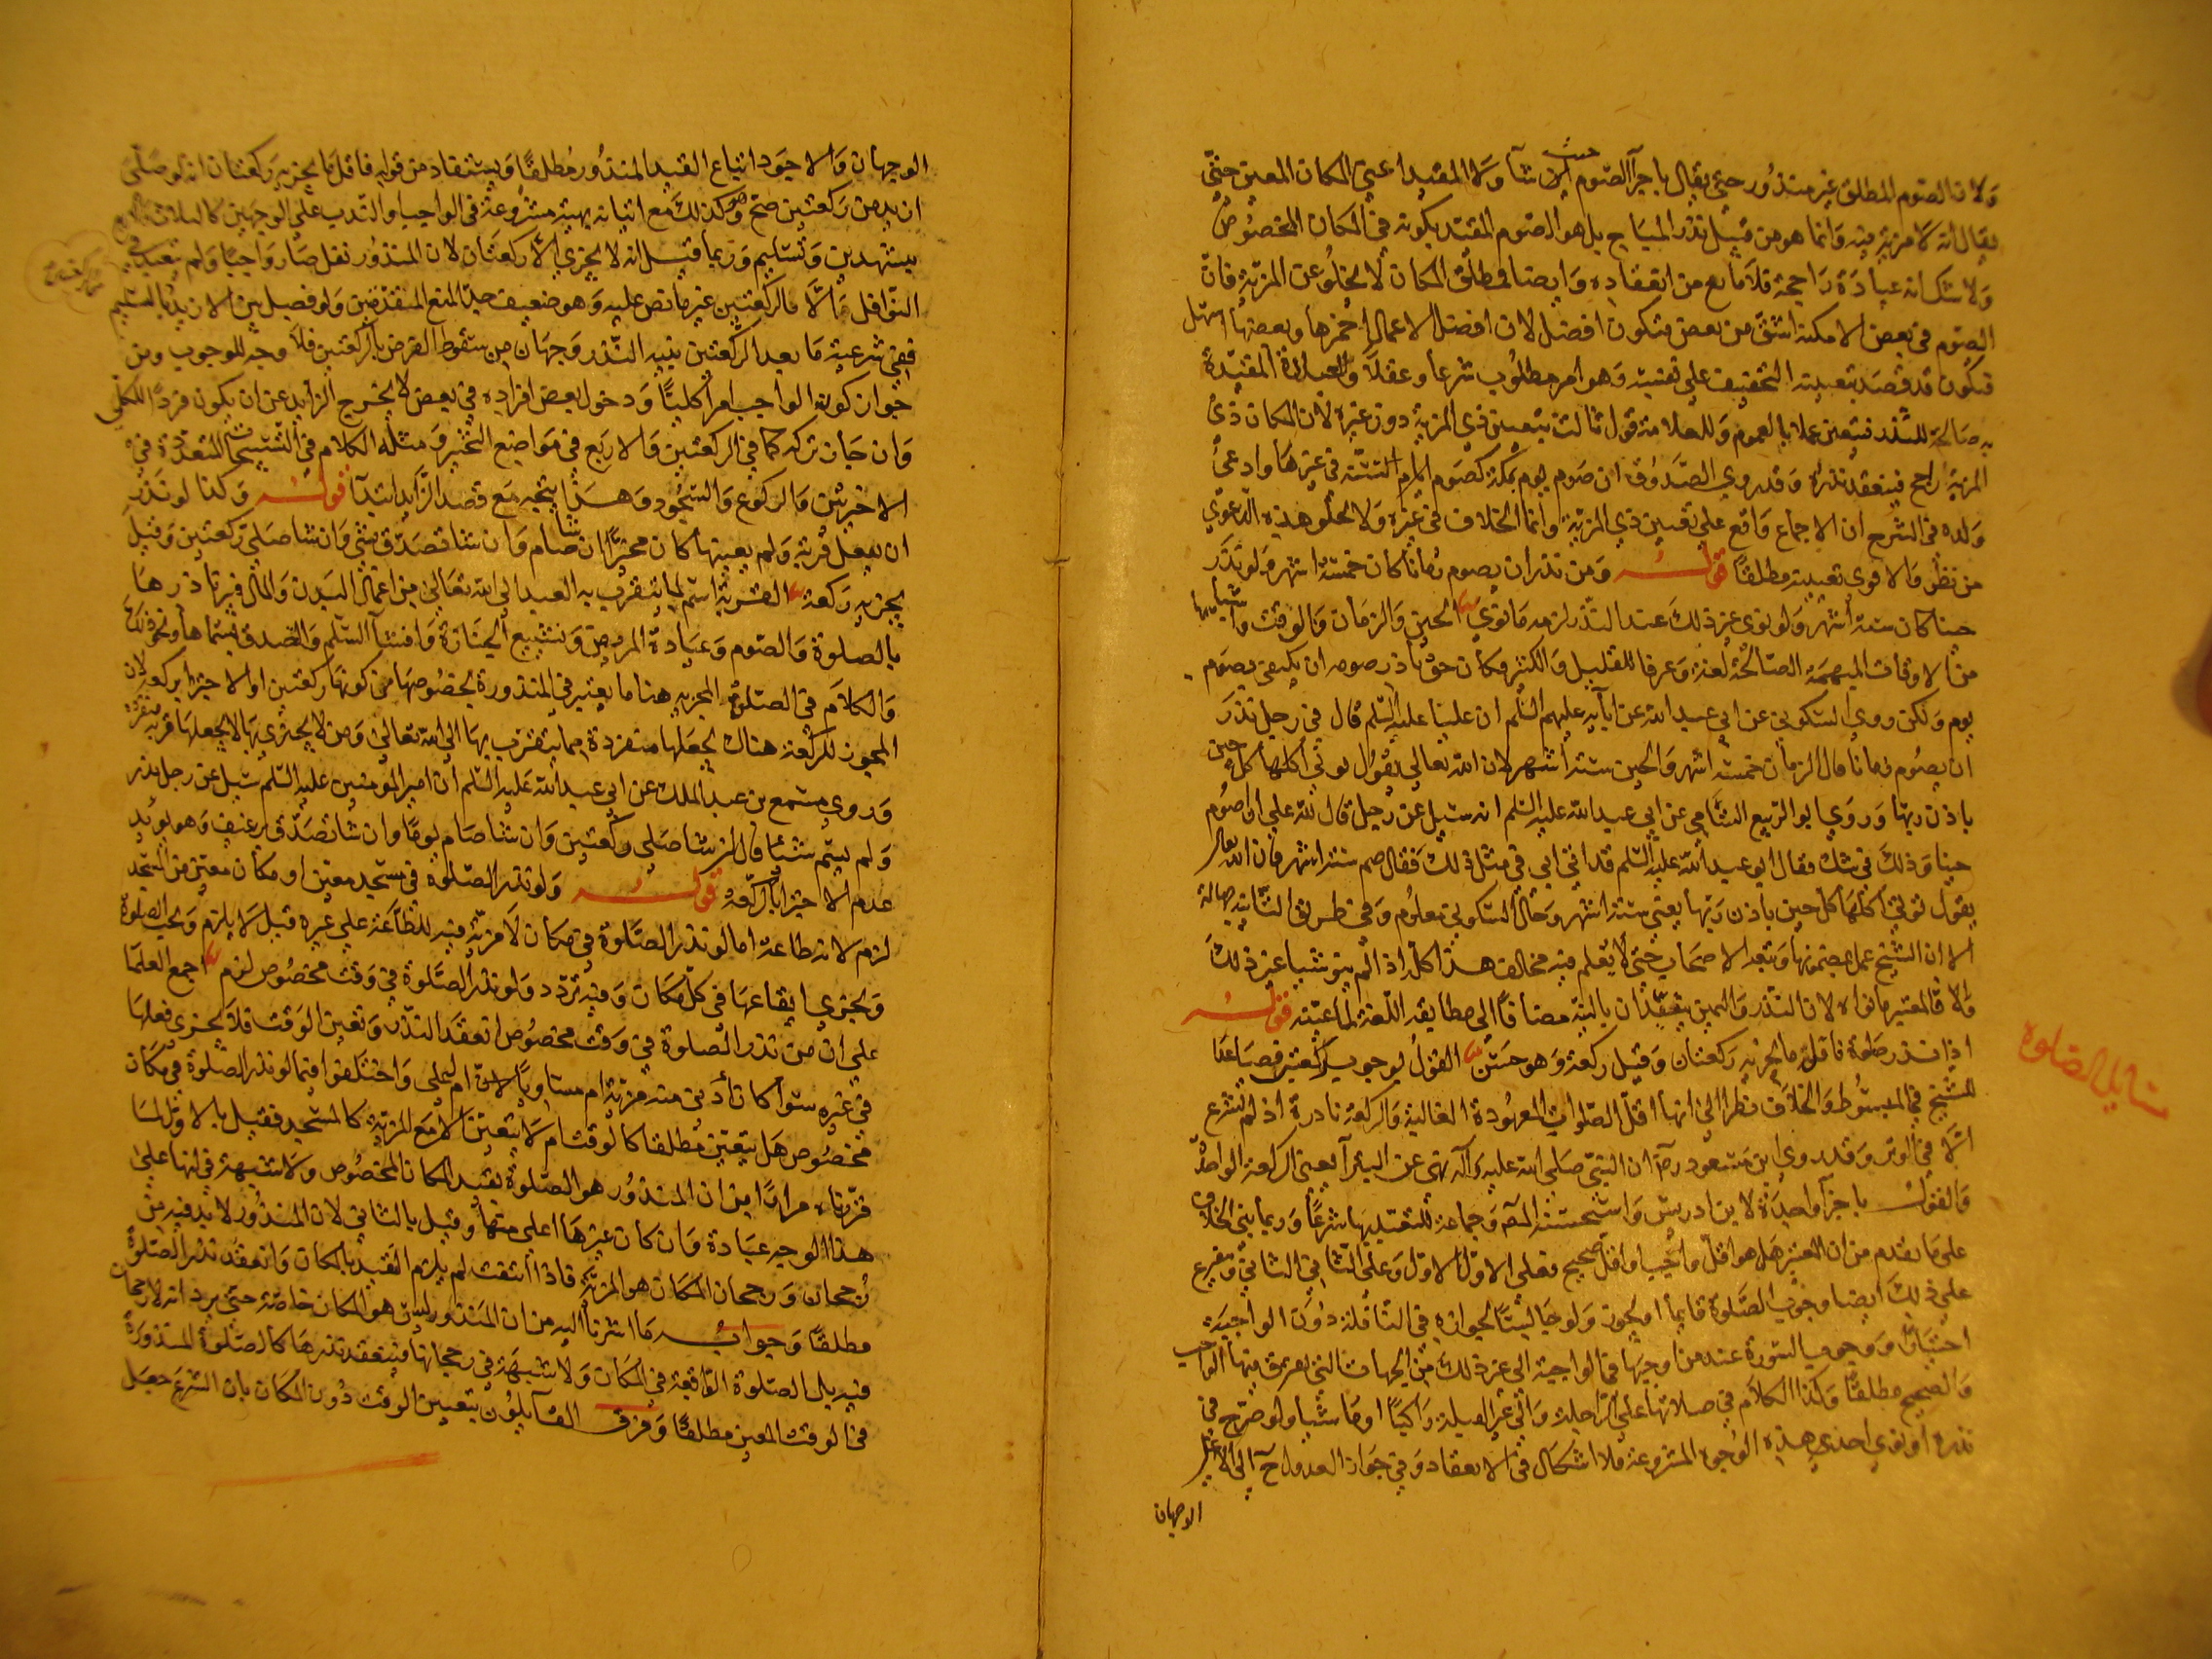 ولان الصوم المطلق غير منذور حتى يقال باجزآ الصوم اين شآ ولا المقيد اعني المكان المعين حتى
حيث
يقال انه لا مزية فيه وانما هو من قبيل نذر المباح بل هو الصوم المقيد بكونه في المكان المخصوص
ولا شك انه عبادة راجحة فلا مانع من انعقاده وايضا فمطلق المكان لا يخلو عن المزية فان
الصوم في بعض الامكنة اشق من بعض فتكون افضل لان افضل الاعمال احمزها وبعضها اسهل
فيكون قد قصد بتعيينه التخفيف على نفسه وهو امر مطلوب شرعا وعقلا والعبادة المقيدة
به صالحة للنذر فتتعين عملا بالعموم وللعلامة قول ثالث بتعين ذي المزية دون غيره لان المكان ذي
المزية راجح فينعقد نذره وقد روي الصدوق ان صوم يوم بمكة كصوم ايام السنة في غيرها وادعى
ولده في الشرح ان الاجماع واقع على تعيين ذي المزية وانما الخلاف في غيره ولا تخلو هذه الدعوى
من نظر والاقوى تعيينه مطلقا قوله ومن نذر ان يصوم زمانا كان خمسة اشهر ولو نذر
حينا كان ستة اشهر ولو نوى غير ذلك عند النذر لزمه ما نوى الحين والزمان والوقت واشباهها
من الاوقات المبهمة الصالحة لغة وعرفا للقليل والكثير فكان حق ناذر صومه ان يكتفي بصوم
يوم ولكن روي السكوني عن ابي عبد الله عن ابآيه عليهم السلم ان عليا عليه السلم قال في رجل نذر
ان يصوم زمانا قال الزمان خمسة اشهر والحين ستة اشهر لان الله تعالى يقول توتي اكلها كل حين
باذن ربها وروي ابو الربيع الشامي عن ابي عبد الله عليه السلم انه سئل عن رجل قال لله علي ان اصوم
حينا وذلك في شك فقال ابو عبد الله عليه السلم قد اتي ابي في مثل ذلك فقال صم ستة اشهر فان الله تعالى
يقول توتي اكلها كل حين باذن ربها يعني ستة اشهر وحال السكوني معلوم وفي طريق الثانية جهالة
الا ان الشيخ عمل بمضمونها وتبعه الاصحاب حتى لا يعلم فيه مخالف هذا كله اذا لم ينو شيا غير ذلك
والا فالمعتبر ما نواه لان النذر واليمين يتقيدان بالنية مضافا الى مطابقة اللغة لما عينه قوله
مسايل الصلوه
اذا نذر صلوة فاقل ما يجزيه ركعتان وقيل ركعة وهو حسن القول بوجوب ركعتين فصاعدا
للشيخ في المبسوط والخلاف نظرا الى انها اقل الصلوات المعهودة الغالبة والركعة نادرة اذ لم تشرع
الا في الوتر وقد روى ابن مسعود رض ان النبي صلى الله عليه وآله نهى عن البترآ يعني الركعة الواحدة
والقول باجزآ واحدة لابن ادريس واستحسنه المص وجماعة للتعبد بها شرعا وربما بني الخلاف
على ما تقدم من ان المعتبر هل هو اقل واجب او اقل صحيح فعلى الاول الاول وعلى الثاني الثاني ويتفرع
على ذلك ايضا وجوب الصلوة قايما او يجوز ولو جالسا لجوازه في النافلة دون الواجبة
اختيارا ووجوب السورة عند من اوجبها في الواجبة الى غير ذلك من الجهات التي يفترق فيها الواجب
والصحيح مطلقا وكذا الكلام في صلاتها على الراحلة والى غير القبلة راكبا او ماشيا ولو صرح في
نذره او نوى احدى هذه الوجوه المشروعة فلا اشكال في الانعقاد وفي جواز العدول ح الى الاعلى
الوجهان
الوجهان والاجود اتباع القيد المنذور مطلقا ويستفاد من قوله فاقل ما يجزيه ركعتان انه لو صلى
ان يد من ركعتين صح وهو كذلك مع اتيانه بهيئة مشروعة في الواجب او الندب على الوجهين كالثلاث والاربع
بتشهدين وتسليم وربما قيل انه لا يجزي الا ركعتان لان المنذور نفل صار واجبا ولم يتعبد في
النوافل الا بالركعتين غير ما نص عليه وهو ضعيف جدا لمنع المقدمتين ولو فصل بين الازيد بالتسليم
ففي شرعية ما بعد الركعتين بنية النذر وجهان من سقوط الفرض بالركعتين فلا وجه للوجوب ومن
جواز كون الواجب امرا كليا ودخول بعض افراده في بعض لا يخرج الزايد عن ان يكون فردا للكلي
وان جاز تركه كما في الركعتين والاربع في مواضع التخير ومثله الكلام في التسبيحات المتعددة في
الاخيرتين والركوع والسجود وهذا يتجه مع قصد الزايد ابتدآ قوله وكذا لو نذر
ان يفعل قربة ولم يعينها كان مخيرا ان شا صام وان شا تصدق بشي وان شا صلى ركعتين وقيل
يجزيه ركعة القربة اسم لما يتقرب به العبد الى الله تعالى من اعمال البدن والمال فيبر ناذرها
بالصلوة والصوم وعيادة المريض وتشييع الجنازة وافشآ السلم والصدقة بمسماها ونحو ذلك
والكلام في الصلوة المجزيه هنا ما يعتبر في المنذورة بخصوصها من كونها ركعتين او الاجتزا بركعة لان
المجوز للركعة هناك يجعلها منفردة مما يتقرب بها الى الله تعالى ومن لا يجتزي بها لا يجعلها قربة منفردة
وروي مسمع بن عبد الملك عن ابي عبد الله عليه السلم ان امير المومنين عليه السلم سئل عن رجل نذر
ولم يسم شيئا قال ان شا صلى ركعتين وان شا صام يوما وان شا تصدق برغيف وهو يؤيد
عدم الاجتزا بالركعة قوله ولو نذر الصلوة في مسجد معين او مكان معين من المسجد
لزم لانه طاعة اما لو نذر الصلوة في مكان لا مزية فيه للطاعة على غيره قيل لا يلزم وتجب الصلوة
ويجزي ايقاعها في كل مكان وفيه تردد ولو نذر الصلوة في وقت مخصوص لزم اجمع العلما
على ان من نذر الصلوة في وقت مخصوص انعقد النذر وتعين الوقت فلا يجزي فعلها
في غيره سوآ كان ادنى منه مزية ام مساويا له ام اعلى واختلفوا فيما لو نذر الصلوة في مكان
مخصوص هل يتعين مطلقا كالوقت ام لا يتعين الا مع المزية كالمسجد فقيل بالاول لما
قررناه مرارا من ان المنذور هو الصلوة بقيد المكان المخصوص ولا شبهة في انها على
هذا الوجه عبادة وان كان غيرها اعلى منها وقيل بالثاني لان المنذور لا بد فيه من
رجحان ورجحان المكان هو المزية فاذا انتفت لم يلزم القيد بالمكان وانعقد نذر الصلوة
مطلقا وجوابه ما اشرنا اليه من ان المنذور ليس هو المكان خاصة حتى يرد انه لا رجحان
فيه بل الصلوة الواقعة في المكان ولا شبهة في رجحانها فينعقد نذرها كالصلوة المنذورة
في الوقت المعين مطلقا وفرق القايلون بتعيين الوقت دون المكان بان الشرع جعل